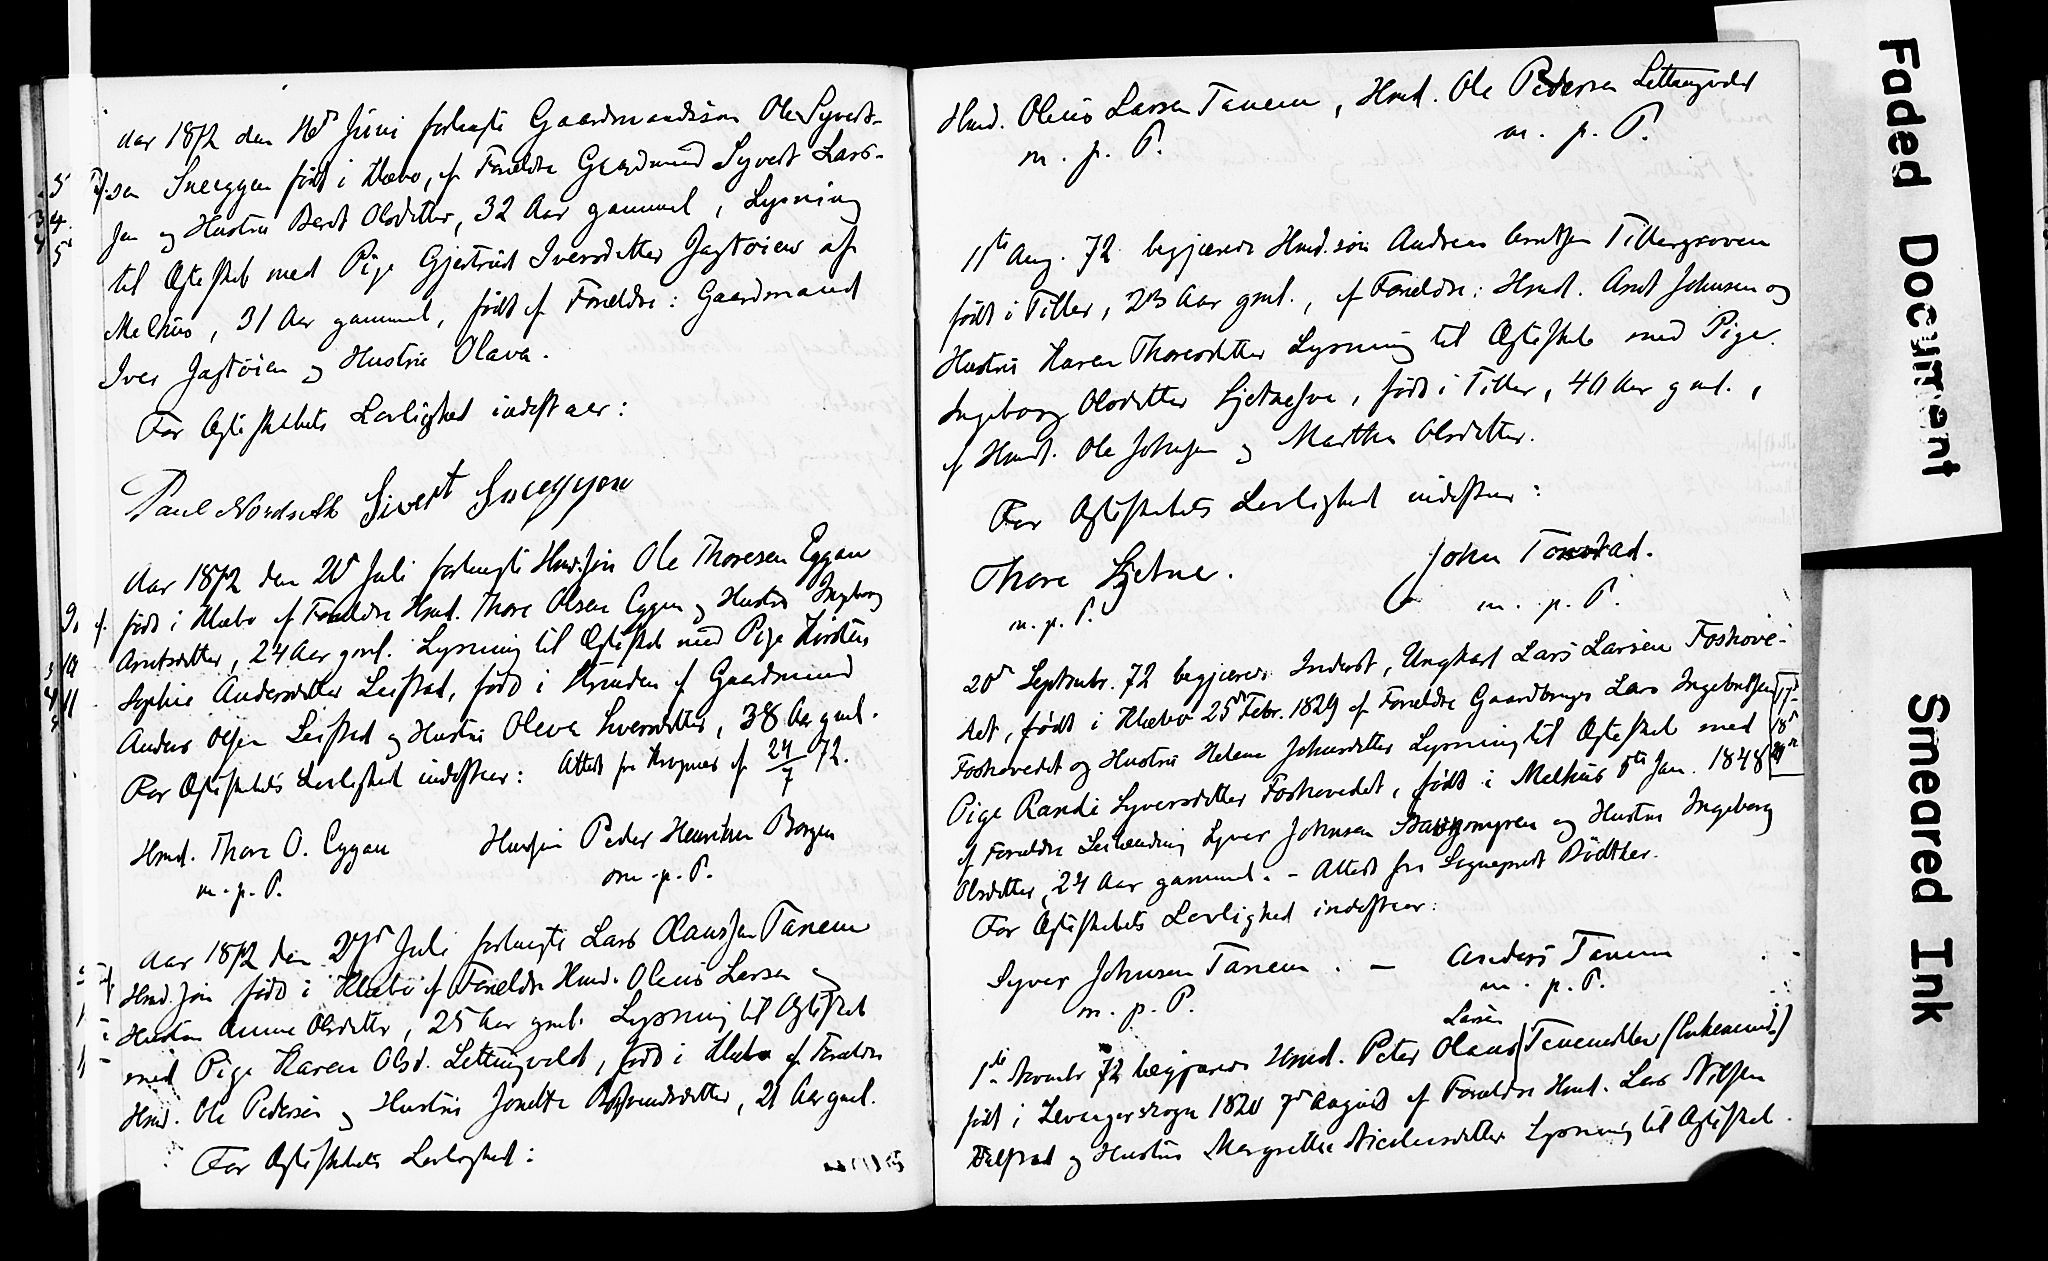 Aar 1872 den 16de Juni forlangte Gaardmandssøn Ole Syverts-
sen Sneeggen født i Klæbo, af Forældre Gaardmand Syvert Lars-
sen og Hustru Berit Olsdatter, 32 Aar gammel, Lysning
til Ægteskab med Pige Gjertrud Iversdatter Jagtøien af
Melhus, 31 Aar gammel, født af Forældre: Gaardmand
Iver Jagtøien og Hustru Olava.
For Ægteskabets Lovlighed indestaaer:
Paul Nordseth Sivert Sneeggen
Aar 1872 den 20d Juli forlangte Hmd.søn Ole Thoresen Eggan
født i Klæbo af Forældre Hmd. Thore Olsen Eggen og Hustru Ingeborg
Arntsdatter, 24 Aar gml. Lysning til Ægteskab med Pige Kirsten
Sophie Andersdatter Leistad, født i Strinden af Gaardmand
Anders Olsen Leistad og Hustru Oleva Iversdatter, 38 Aar gml.
For Ægteskabets Lovlighed indestaaer: Attest fra af 24/7 72.
Hmd. Thore O. Eggan Hmdsøn Peder Henriksen Borgen
m. p. P. m. p. P.
Aar 1872 den 27d Juli forlangte Lars Olaussen Tanem
Hmd.søn født i Klæbo af Forældre Hmd. Oleus Larsen og
Hustru Anne Olsdatter, 25 Aar gml. Lysning til Ægteskab
med Pige Karen Olsd. Lettingvold, født i Klæbo af Forældre
Hmd. Ole Pedersen og Hustru Jonetta 21 Aar gml.
For Ægteskabets Lovlighed:
Hmd. Oleus Larsen Tanem, Hmd. Ole Pedersen Lettingvold
m. p. P. m. p. P.
11te Aug. 72 begjærede Hmd.søn Andreas Arntsen Tillergroven
født i Tiller, 23 Aar gml., af Forældre: Hmd. Arnt Johnsen og
Hustru Karen Thoresdatter Lysning til Ægteskab med Pige
Ingeborg Olsdatter Sjetnehove, født i Tiller, 40 Aar gml.,
af Hmd. Ole Johnsen og Martha Olsdatter.
For Ægteskabets Lovlighed indestaar:
Thore Sjetne. John Tonstad.
m. p. P. m. p. P.
20d Septembr. 72 begjærede Inderst, Ungkarl Lars Larsen Foskove-
det, født i Klæbo 25d Febr. 1829 af Forældre Gaardbruger Lars Ingebrigtsen
Foskovedet og Hustru Helene Johnsdatter Lysning til Ægteskab med
Pige Randi Syversdatter Foskovedet, født i Melhus 5te Jan. 1848
af Forældre Leilænding Syver Johnsen og Hustru Ingeborg
Olsdatter, 24 Aar gammel. - Attest fra Sogneprest Bødtker.
For Ægteskabets Lovlighed indestaaer:
Syver Johnsen Tanem. - Anders Tanem
m. p. P. m. p. P.
Larsen
1ste Novembr 72 begjærede Hmd. Peter Olaus Tanemsætter (Enkemand)
født i Levangerskogn 1820 7d August af Forældre Hmd. Lars Nilsen
og Hustru Margrethe Lysning til Ægteskab
Faded Document
Smeared Ink